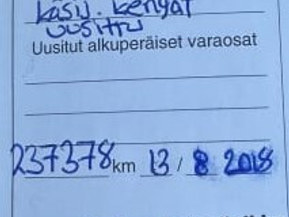 käsij. kengät
uusittu
Uusitut alkuperäiset varaosat
237378 km 13 / 8 2018